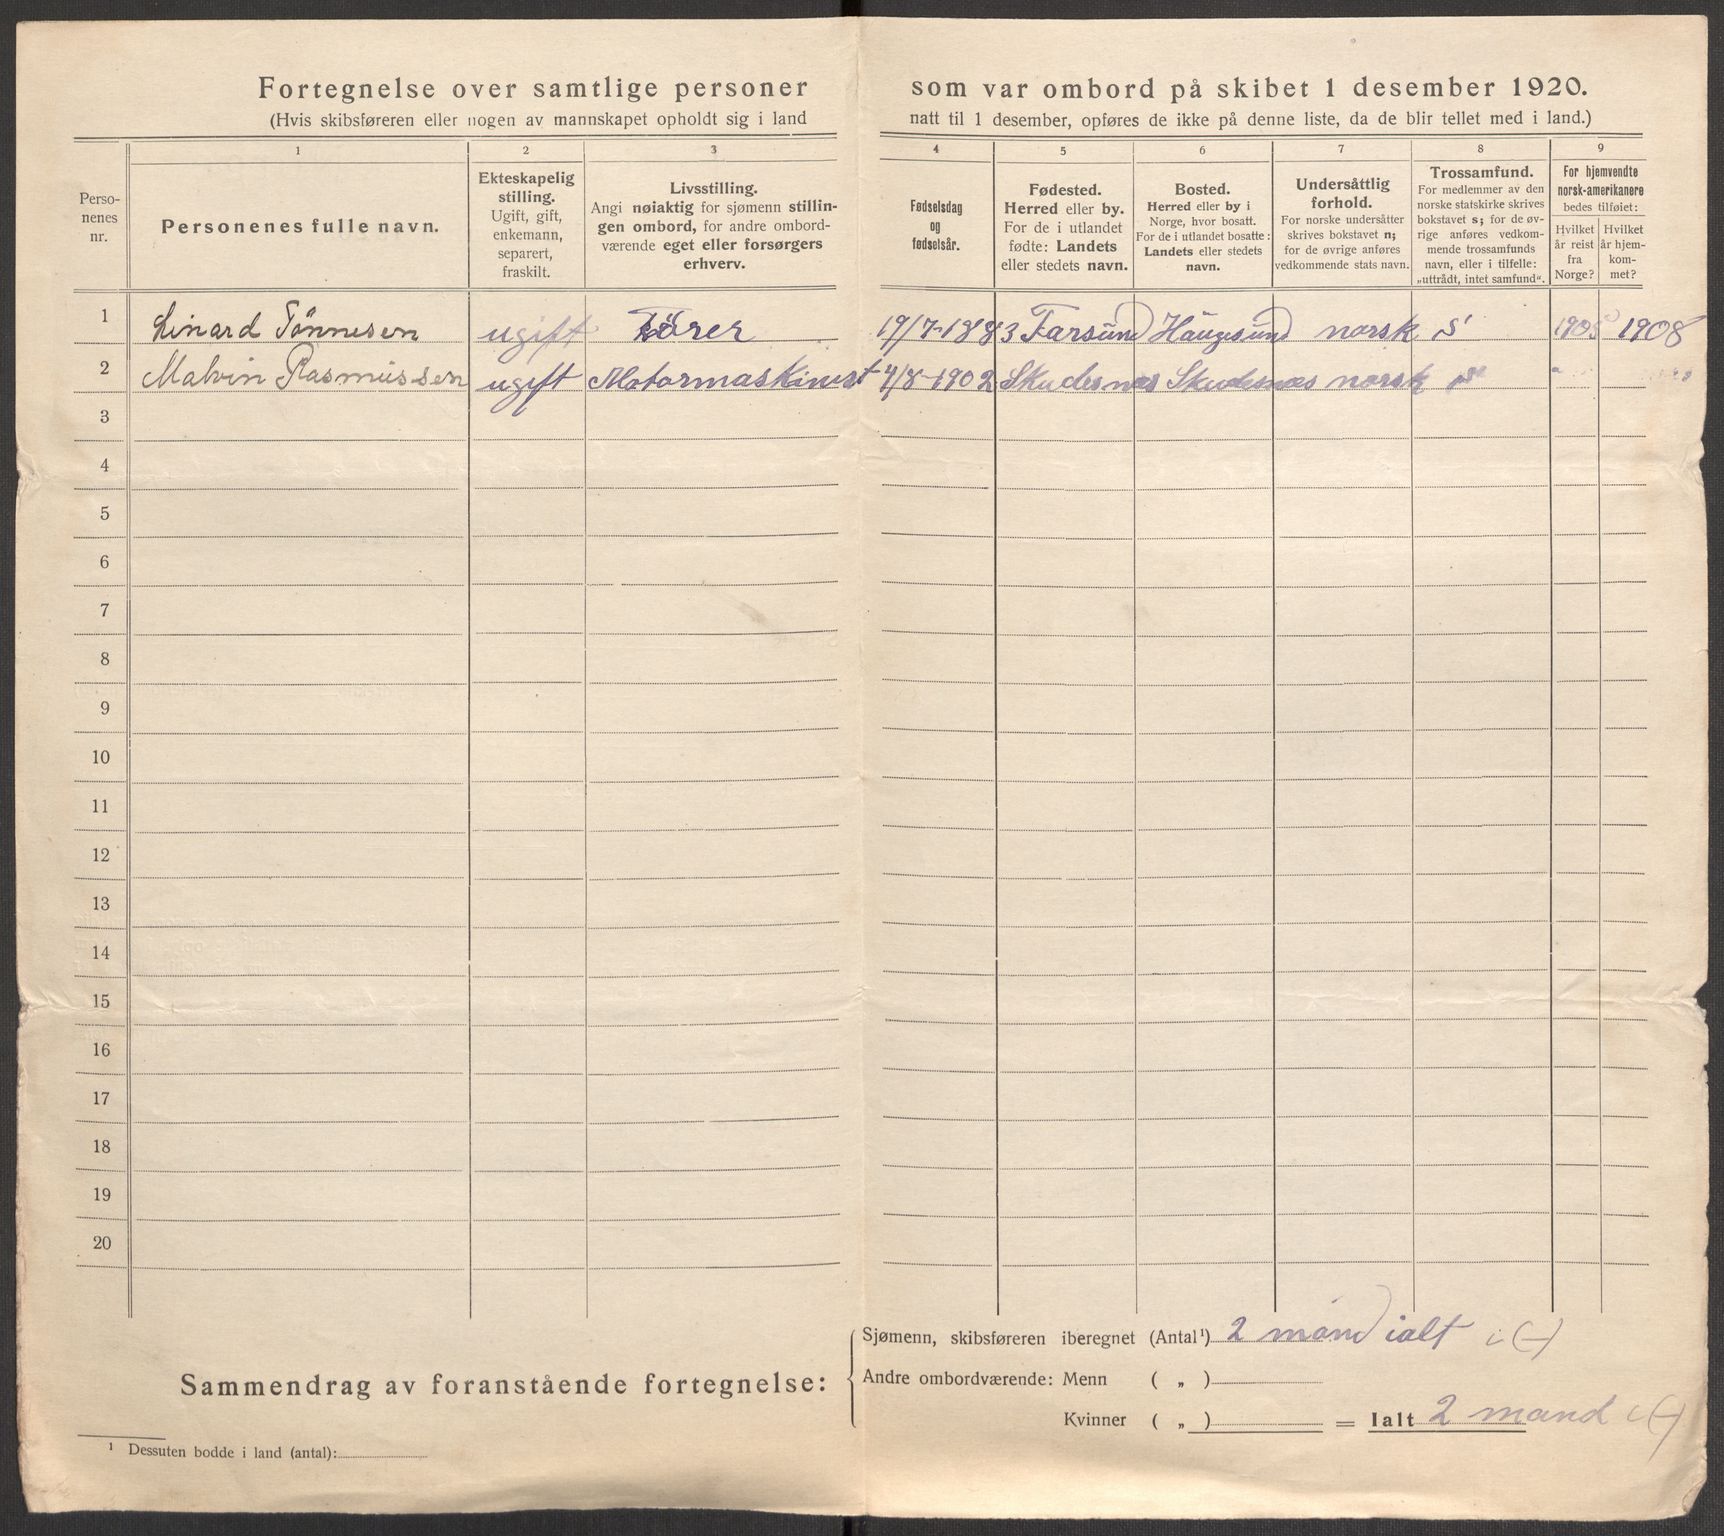 Fortegnelse over samtlige personer som var ombord på skibet 1 desember 1920.
(Hvis skibsføreren eller nogen av mannskapet opholdt sig i land natt til 1 desember, opføres de ikke på denne liste, da de blir tellet med i land.)
Perso-
nenes
nr.
1
Personenes fulle navn.
2
Ekteskapelig
stilling.
Ugift, gift,
enkemann,
separert,
fraskilt.
3
Livsstilling.
Angi nøiaktig for sjømenn stillin-
gen ombord, for andre ombord-
værende eget eller forsørgers
erhverv.
4
Fødselsdag
og
fødselsår.
5
Fødested.
Herred eller by.
For de i utlandet
fødte: Landets
eller stedets navn.
6
Bosted.
Herred eller by i
Norge, hvor bosatt.
For de i utlandet bosatte:
Landets eller stedets
navn.
7
Undersåttlig
forhold.
For norske undersåtter
skrives bokstavet n;
for de øvrige anføres
vedkommende stats navn.
8
Trossamfund.
For medlemmer av den
norske statskirke skrives
bokstavet s; for de øv-
rige anføres vedkom-
mende trossamfunds
navn, eller i tilfelle:
„uttrådt, intet samfund“.
9
For hjemvendte
norsk-amerikanere
bedes tilføiet:
Hvilket
år reist
fra
Norge?
Hvilket
år hjem-
kom-
met?
1 Linard Tönnesen ugift Förer 19/7-1883 Farsund Haugesund norsk s 1905 1908
2 Malvin Rasmussen ugift Motormaskinist 4/8-1902 Skudesnæs Skudesnæs norsk s
3
4
5
6
7
8
9
10
11
12
13
14
15
16
17
18
19
20
Sammendrag av foranstående fortegnelse:
Sjømenn, skibsføreren iberegnet (Antal¹) 2 mand ialt
Andre ombordværende: Menn ( „ )
Kvinner ( „ ) = Ialt 2 mand
¹ Dessuten bodde i land (antal):